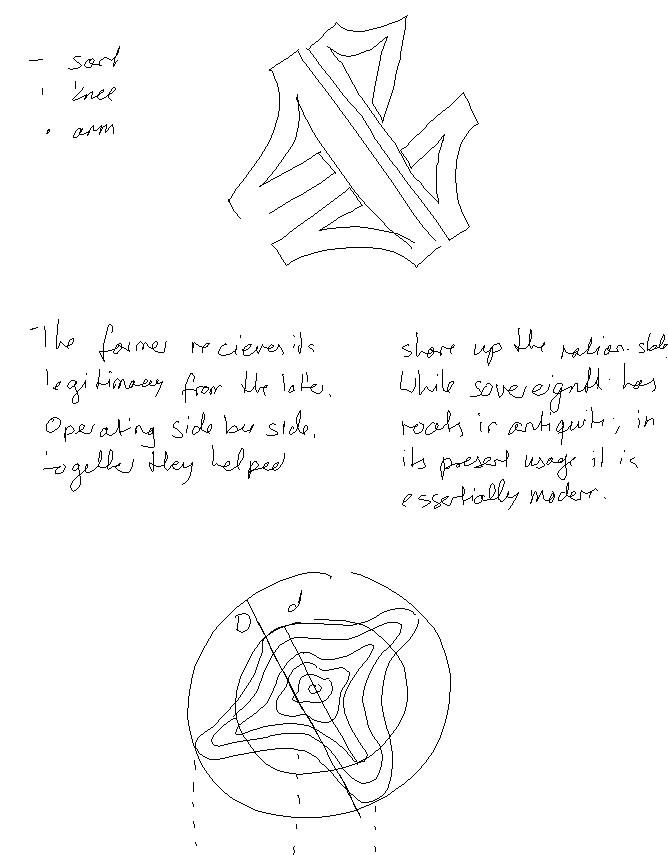 - sort
' knee
• arm
The former recieves its
legitimacy from the latter.
Operating side by side,
together they helped
shore up the nation-state
While sovereignty has
roots in antiquity, in
its present usage it is
essentially modern.
D d